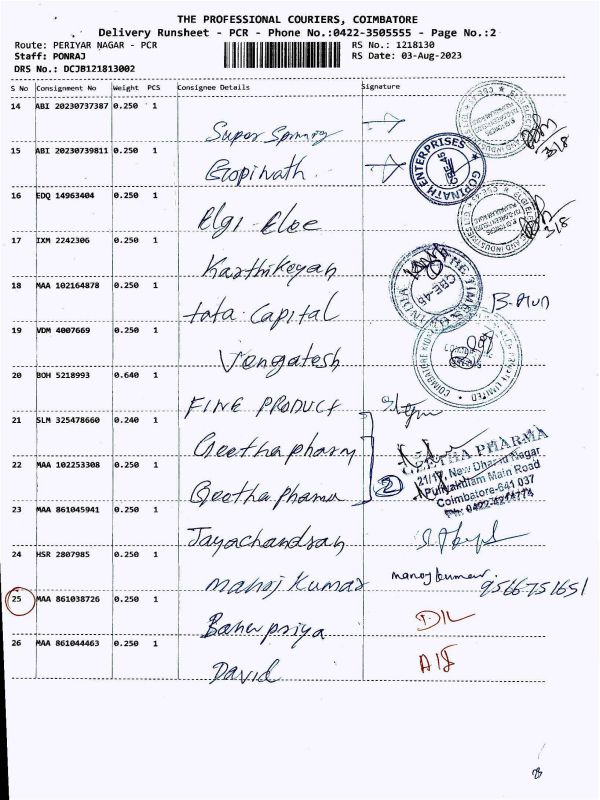 THE PROFESSIONAL COURIERS, COIMBATORE
Delivery Runsheet - PCR - Phone No.:0422-3505555 - Page No.:2
Route: PERIYAR NAGAR - PCR RS No.: 1218130
Staff: PONRAJ RS Date: 03-Aug-2023
DRS No.: DCJB121813002
S No Consignment No Weight PCS Consignee Details Signature
14 ABI 20230737387 0.250 1
Super Spinning
3/8
15 ABI 20230739811 0.250 1
Gopinath
GOPINATH ENTERPRISES
CBE-45
16 EDQ 14963404 0.250 1
Elgi Elec
3/8
17 IXM 2242306 0.250 1
Karthikeyan
18 MAA 102164878 0.250 1
tata Capital
CBE-45
19 VDM 4007669 0.250 1
Vengatesh
20 BOH 5218993 0.640 1
FINE PRODUCT
21 SLM 325478660 0.240 1
Geetha pharm
GEETHA PHARMA
21/17, New Dhamu Nagar
Puliyakulam Main Road
Coimbatore-641 037
Ph: 0422-4214774
22 MAA 102253308 0.250 1
Geetha pharma
2
23 MAA 861045941 0.250 1
Jayachandran
24 HSR 2807985 0.250 1
manoj Kumar manoj kumar 9566751651
25 MAA 861038726 0.250 1
Banupriya D/L
26 MAA 861044463 0.250 1
David